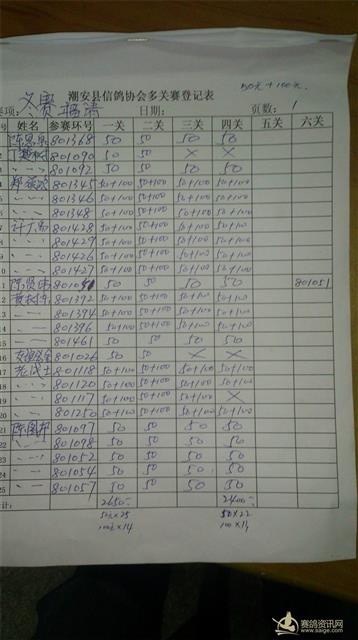 50元+100元.
潮安县信鸽协会多关赛登记表
项: 冬赛 福清 日期: 页数: 1
号 姓名 参赛环号 一关 二关 三关 四关 五关 六关
801368 50 50 50 50
2 801090 50 50 × ×
3 〃 〃 801092 50 50 50 50
4 801345 50+100 50+100 50+100 50+100
5 〃 〃 801346 50+100 50+100 50+100 50+100
6 〃 〃 801348 50+100 50+100 50+100 50+100
7 801428 50+100 50+100 50+100 50+100
8 〃 〃 801429 50+100 50+100 50+100 50+100
9 〃 〃 801426 50+100 50+100 50+100 50+100
10 〃 〃 801427 50+100 50+100 50+100 50+100
11 50 50 50 50 801051
12 801392 50+100 50+100 50+100 50+100
13 〃 〃 801394 50+100 50+100 50+100 50+100
14 〃 〃 801396 50+100 50+100 50+100 50+100
15 〃 〃 801461 50 50 50 50
16 801026 50 50 × ×
17 801118 50+100 50+100 50+100 50+100
18 〃 〃 801120 50+100 50+100 50+100 50+100
19 〃 〃 801117 50+100 50+100 50+100 ×
20 〃 〃 801250 50+100 50+100 50+100 50+100
21 801097 50 50 50 50
22 〃 〃 801098 50 50 50 50
23 〃 〃 801052 50 50 50 50
24 〃 〃 801054 50 50 50 50
25 〃 〃 801057 50 50 50 50
计: 2650 2400
50×25 50×22
100×14 100×13
赛鸽资讯网
www.saige.com